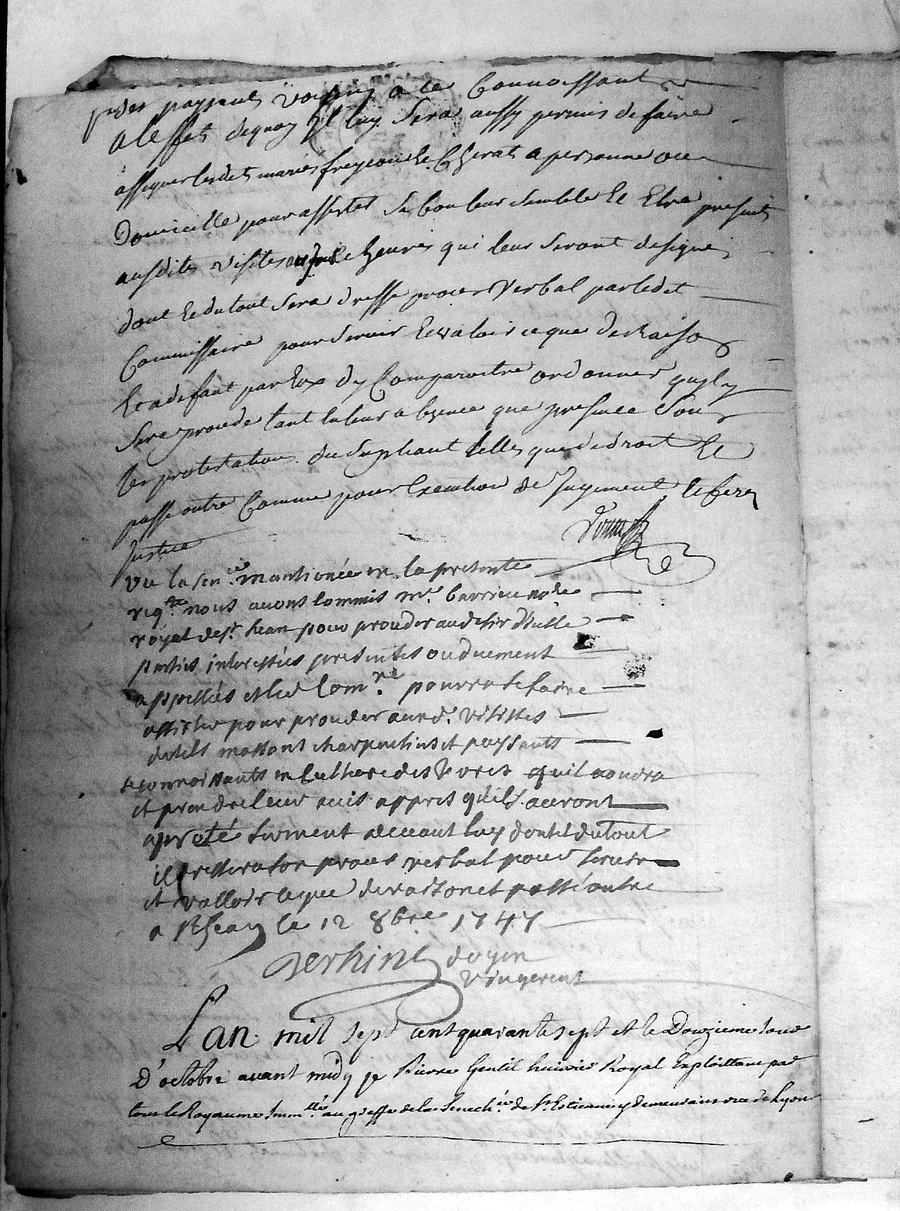 paysants voisins a ce Connoissant
a leffet dequoy Il luy sera aussy permis de faire
assigner lesdits mariés freycon Et Cherat a personne ou
Domicille pour assister sy bon leur semble Et Etre presents
ausdites visites Et heures qui leur seront designé
dont Et du tout sera dressé procès Verbal par ledit
Commissaire pour servir Et valoir ce que de Raison
Et a defaut par Eux dy Comparoitre ordonner quil y
sera procedé tant En leur absence que presence sous
les protestations du supliant telles que de droit Et
passé outre Comme pour Execution de Jugement Et ferez
Justice
Vu la senᶜᵉ mantionée en la presente
reqᵗᵉ nous avons commis mʳ Barrieu noʳᵉ
royal de sᵗ hean pour proceder au desir dicelle
parties interessées presentes ou duement
appellées et led Comʳᵉ pourra se faire
assister pour proceder auxdᵗ visittes
massons charpentiers et paysants
connoissants en culture des terres quil voudra
et prendre leur avis appres quils auront
apreté serment devant luy dont et du tout
il dressera son proces verbal pour servir
et valloir ce que de raison et passé outre
a Sᵗ hean le 12 8bre 1747
doyen
vougerent
L'an mil sept cent quarante sept et le Douzieme Jour
D'octobre avant midy je Pierre Gentil huissier Royal Exploittant par
tout le Royaume Immᵗˡé au greffe de la Senechᵉᵉ de Sᵗ Estienne y demeurant rue de Lyon